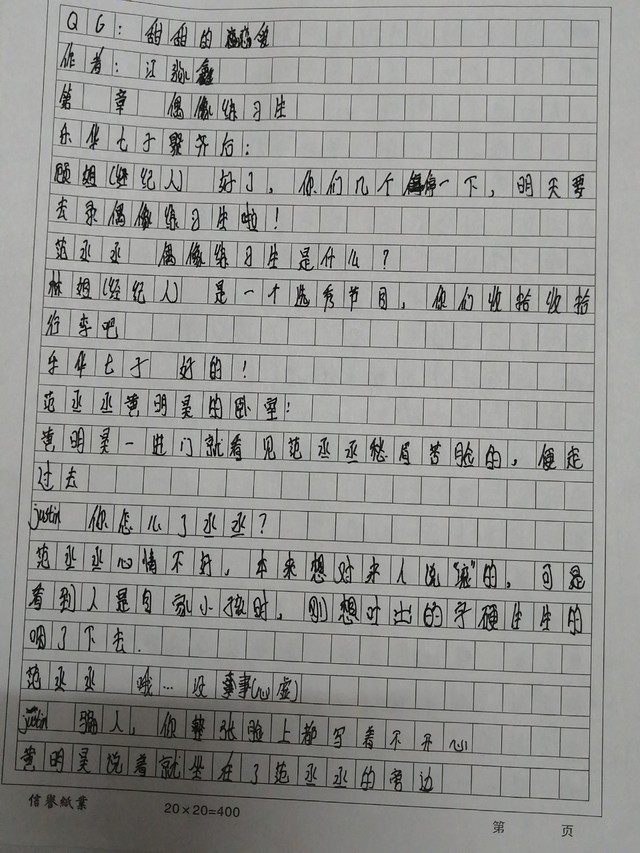 QG：甜甜的
作者：江
第 章 偶像练习生
乐华七子聚齐后：
顾姐(经纪人) 好了，你们几个停一下，明天要
去录偶像练习生啦！
范丞丞 偶像练习生是什么？
林姐(经纪人) 是一个选秀节目，你们收拾收拾
行李吧
乐华七子 好的！
范丞丞黄明昊的卧室：
黄明昊一进门就看见范丞丞愁眉苦脸的，便走
过去
justin 你怎么了丞丞？
范丞丞心情不好，本来想对来人说“滚”的，可是
看到人是自家小孩时，刚想吐出的字硬生生的
咽了下去.
范丞丞 哦…没事(心虚)
justin 骗人，你整张脸上都写着不开心
黄明昊说着就坐在了范丞丞的旁边
信誉紙業 20×20=400 第 页